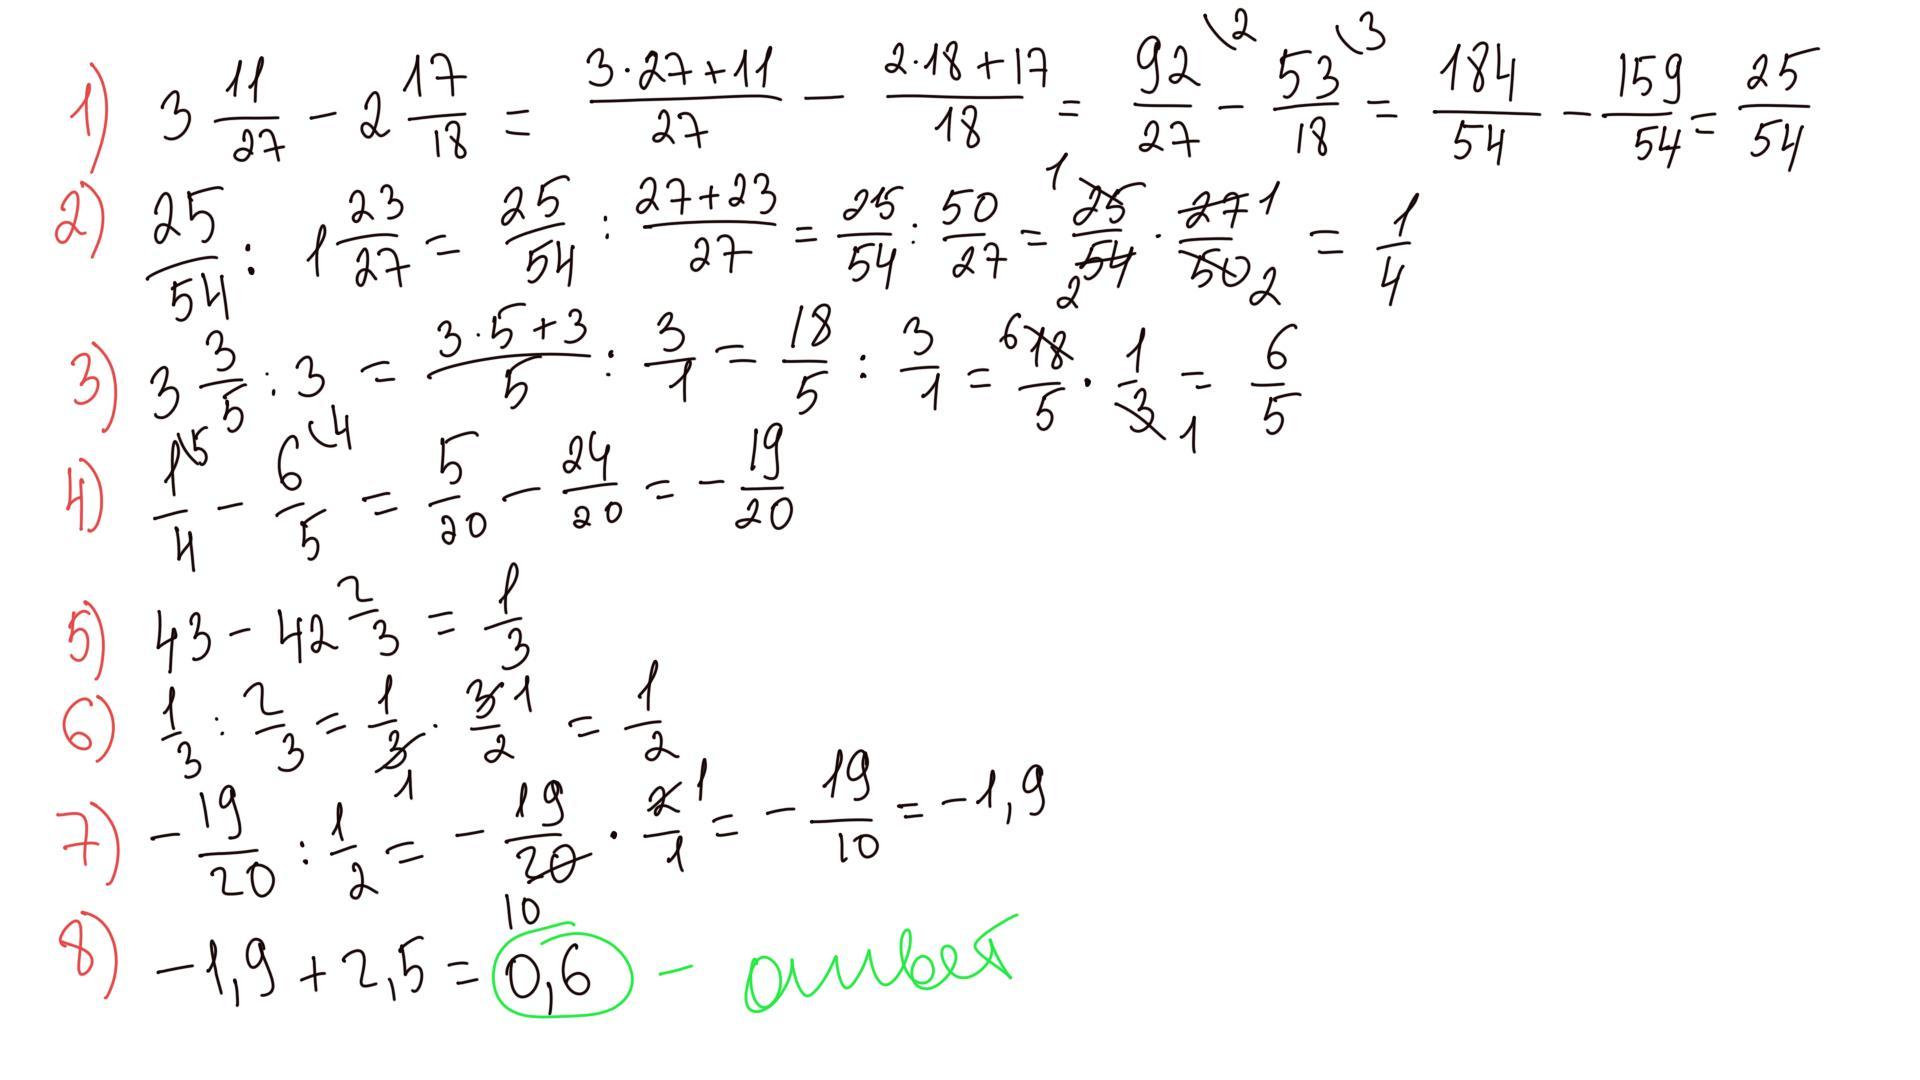 1) 3 11/27 - 2 17/18 = (3·27+11)/27 - (2·18+17)/18 = 92\2/27 - 53\3/18 = 184/54 - 159/54 = 25/54
2) 25/54 : 1 23/27 = 25/54 : (27+23)/27 = 25/54 : 50/27 = 1 25/54 2 · 27 1/50 2 = 1/4
3) 3 3/5 : 3 = (3·5+3)/5 : 3/1 = 18/5 : 3/1 = 6 18/5 · 1/3 1 = 6/5
4) 1\5/4 - 6\4/5 = 5/20 - 24/20 = - 19/20
5) 43 - 42 2/3 = 1/3
6) 1/3 : 2/3 = 1/3 1 · 3 1/2 = 1/2
7) - 19/20 : 1/2 = - 19/20 10 · 2 1/1 = - 19/10 = -1,9
8) -1,9 + 2,5 = 0,6 - ответ